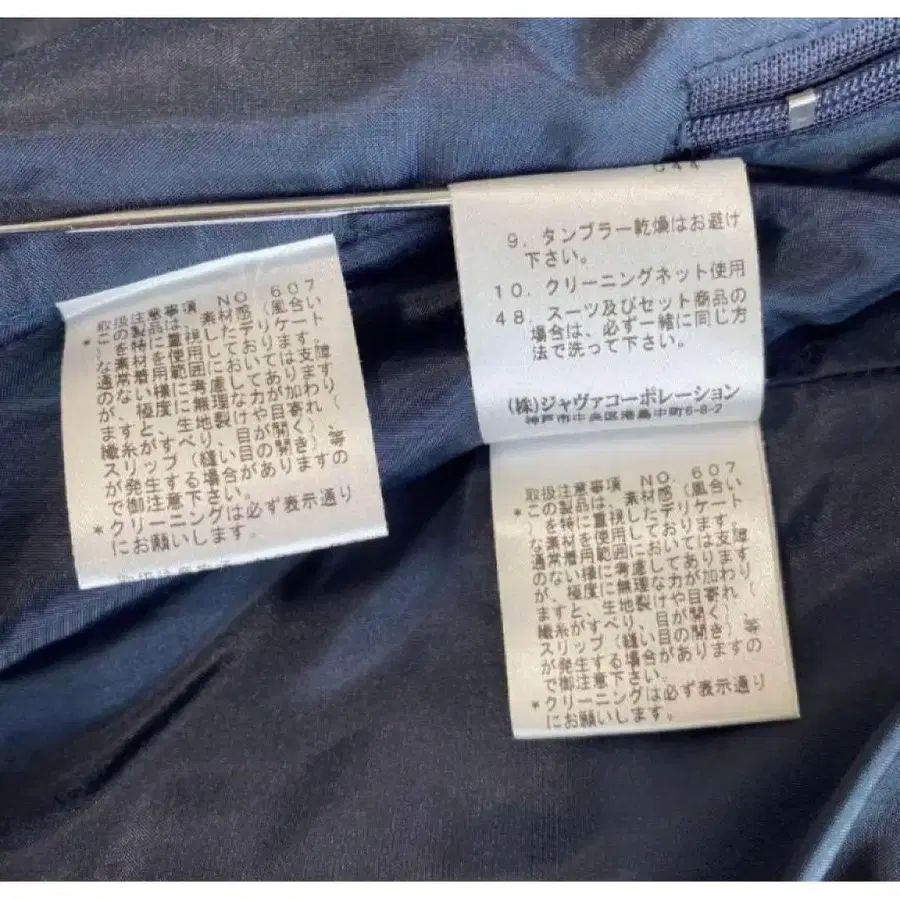 取扱注意事項 NO. 607
*この製品は、素材感(風合い
)を特に重視したデリケート
な素材を使用しております。
通常着用範囲においては支障
のない様に考慮しております
が、極度に無理な力が加わり
ますと、生地裂けや目寄れ(
織糸がすべり、目が開く)、
スリップ(縫い目の開き)等
が発生する場合がありますの
で御注意下さい。
*クリーニングは必ず表示通り
にお願いします。
9. タンブラー乾燥はお避け
下さい。
10. クリーニングネット使用
48. スーツ及びセット商品の
場合は、必ず一緒に同じ方
法で洗って下さい。
(株)ジャヴァコーポレーション
神戸市中央区港島中町6-8-2
取扱注意事項 NO. 607
*この製品は、素材感(風合い
)を特に重視したデリケート
な素材を使用しております。
通常着用範囲においては支障
のない様に考慮しております
が、極度に無理な力が加わり
ますと、生地裂けや目寄れ(
織糸がすべり、目が開く)、
スリップ(縫い目の開き)等
が発生する場合がありますの
で御注意下さい。
*クリーニングは必ず表示通り
にお願いします。